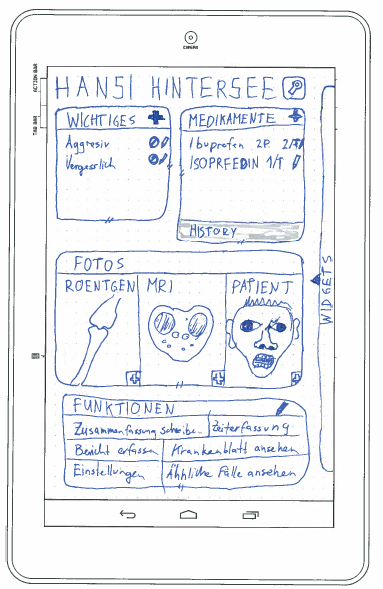 CAMERA
ACTION BAR
TAB BAR
HANSI HINTERSEE
WICHTIGES
Aggresiv
Vergesslich
MEDIKAMENTE
Ibuprofen 2P. 2/T
ISOPRFEDIN 1/T
HISTORY
WIDGETS
FOTOS
ROENTGEN MRI PATIENT
FUNKTIONEN
Zusammenfassung schreiben Zeiterfassung
Bericht erfassen Krankenblatt ansehen
Einstellungen Ähnliche Fälle ansehen